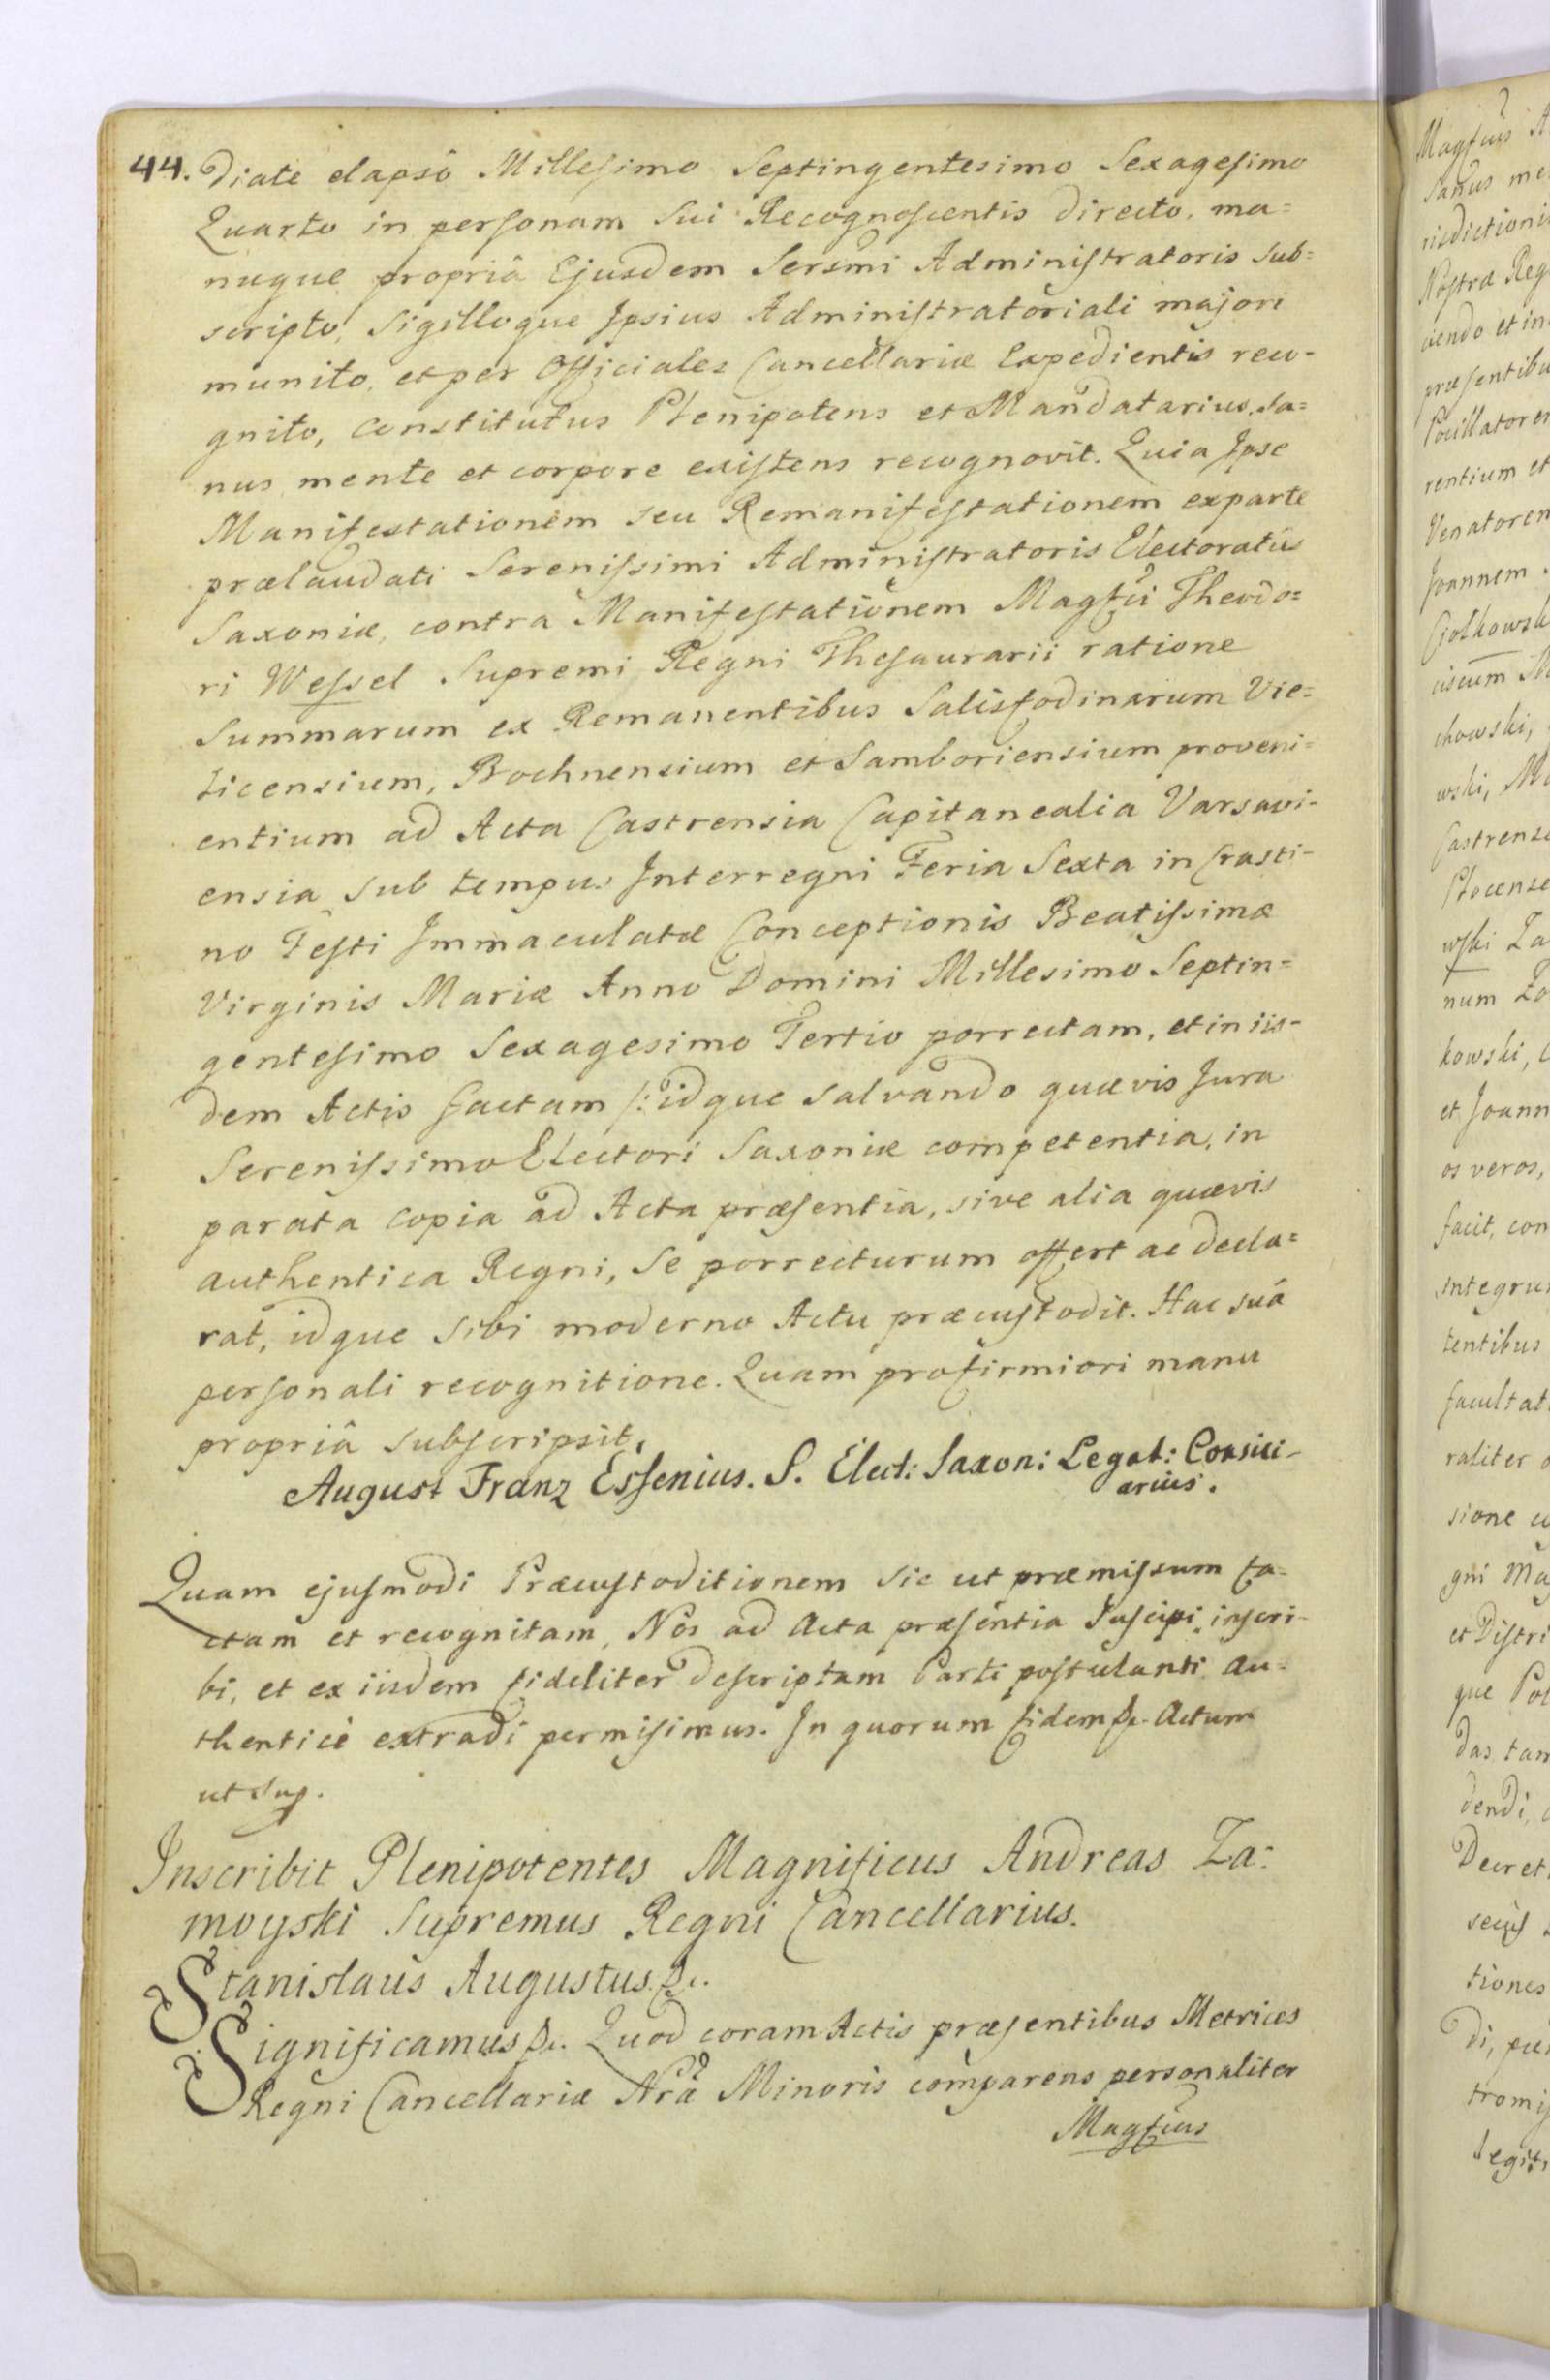 44.
diate elapsô Millesimo Septingentesimo Sexagesimo
Quarto in personam sui Recognoscentis directo, ma=
nuque propriâ Ejusdem Sersmi Administratoris sub=
scripto, Sigilloque Ipsius Administratoriali majori
munito, et per Officiales Cancellariæ Expedientis reco-
gnito, constitutus Plenipotens et Mandatarius, sa=
nus mente et corpore existens recognovit. Quia Ipse
Manifestationem seu Remanifestationem ex parte
prælaudati Serenissimi Administratoris Electoratûs
Saxoniæ, contra Manifestationem Magfci Theodo=
ri Wessel Supremi Regni Thesaurarii ratione
Summarum ex Remanentibus Salisfodinarum Vie=
licensium, Bochnensium et Samboriensium proveni=
entium ad Acta Castrensia Capitanealia Varsavi-
ensia sub tempus Interregni Feria Sexta in Crasti-
no Festi Immaculatæ Conceptionis Beatissimæ
Virginis Mariæ Anno Domini Millesimo Septin=
gentesimo Sexagesimo Tertio porrectam, et in iis-
dem Actis factam /: idque salvando quævis Jura
Serenissimo Electori Saxoniæ competentia, in
parata copia ad Acta præsentia, sive alia quævis
authentica Regni, se porrecturum offert ac decla=
rat, idque sibi moderno Actu præcustodit. Hac suâ
personali recognitione. Quam pro firmiori manu
propriâ subscripsit.
August Franz Essenius. S. Elect: Saxon: Legat: Consili-
arius.
Quam ejusmodi Præcustoditionem sic ut præmissum fa-
ctam et recognitam, Nos ad Acta præsentia suscipi, inscri-
bi, et ex iisdem fideliter descriptam Parti postulanti au-
thenticè extradi permisimus. In quorum fidem &c. Actum
ut sup.
Inscribit Plenipotentes Magnificus Andreas Za=
moyski Supremus Regni Cancellarius.
Stanislaus Augustus &c.
Significamus &c. Quod coram Actis præsentibus Metrices
Regni Cancellariæ Nrâ Minoris comparens personaliter
Magfcus
Magfcus
sanus me
risdictioni
Nostræ Reg
ciendo et in
præsentibu
Pocillatorem
rentium et
Venatorem
Joannem
Czołkowsk
ciscum M
chowski,
wski, M
Castrens
Plocense
wski Za
num Zo
kowski,
et Joann
os veros,
facit, con
integru
tentibus
facultat
raliter
sione
gni Ma
et Distri
que Pol
das tam
dendi,
Decret
tiones
di,
tromi
legit